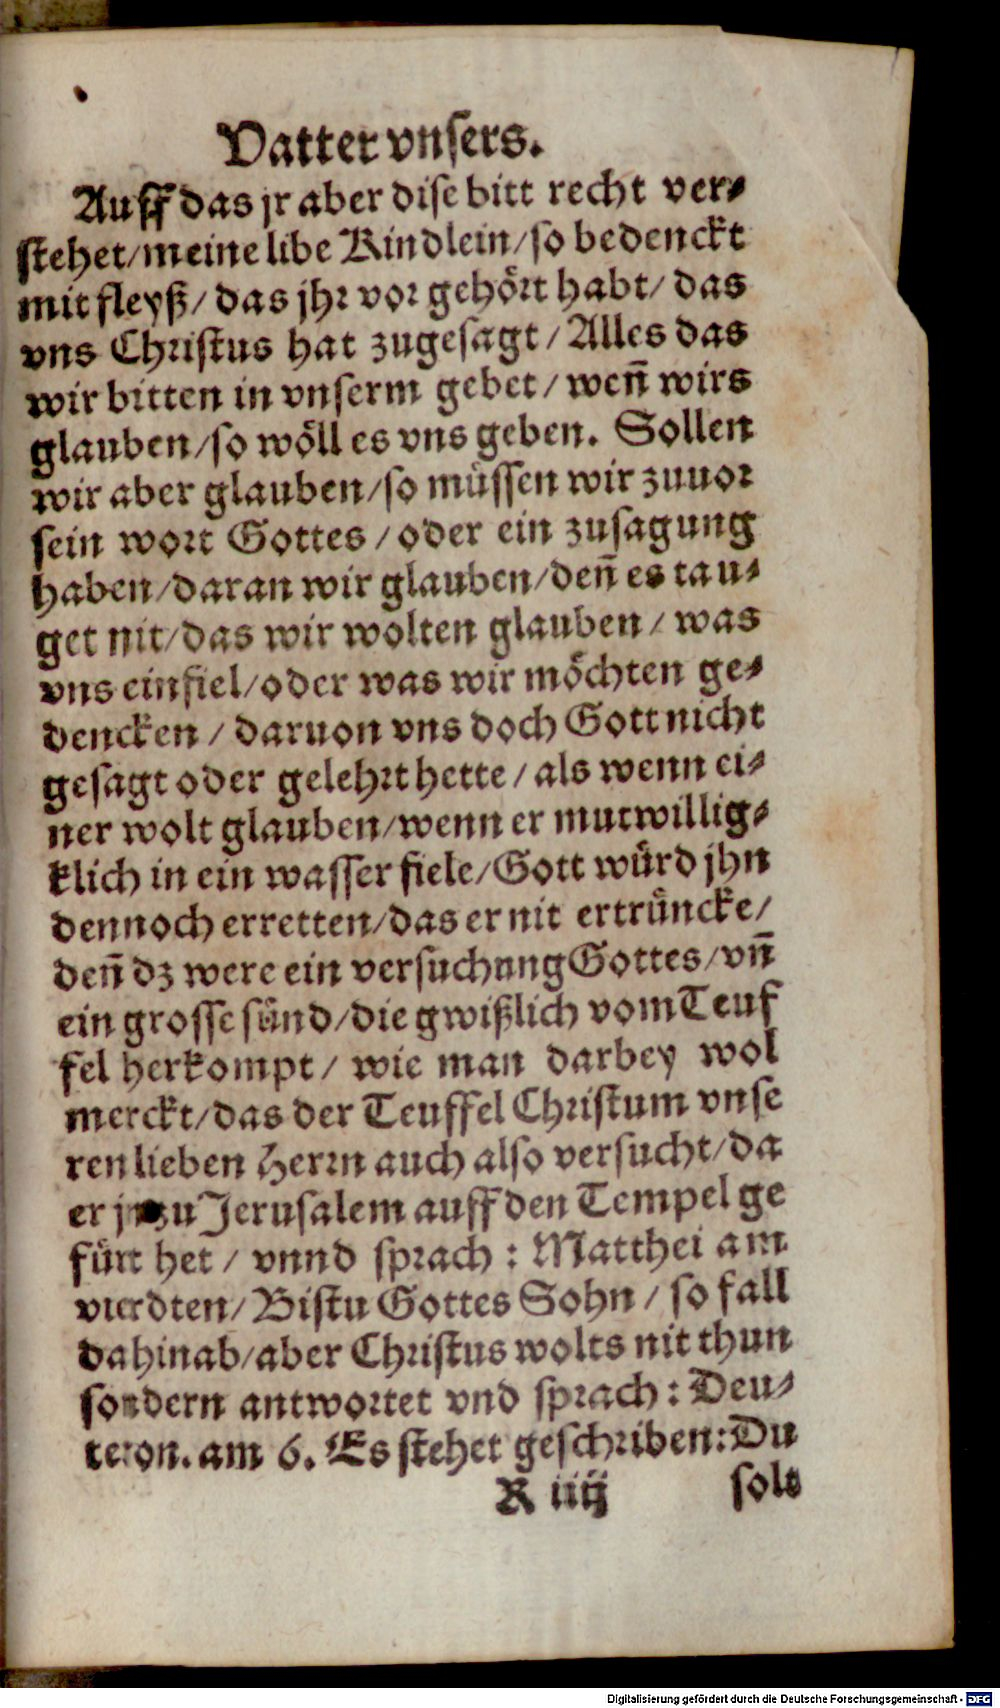 Vatter vnsers.
Auff das jr aber dise bitt recht ver⸗
stehet/meine libe Kindlein/so bedenckt
mit fleyß/ das jhr vor gehört habt/ das
vns Christus hat zugesagt / Alles das
wir bitten in vnserm gebet / wen̄ wirs
glauben/so wöll es vns geben. Sollen
wir aber glauben/so müssen wir zuuor
sein wort Gottes / oder ein zusagung
haben/daran wir glauben/den̄ es tau⸗
get nit/das wir wolten glauben / was
vns einfiel/oder was wir möchten ge⸗
dencken / daruon vns doch Gott nicht
gesagt oder gelehrt hette / als wenn ei⸗
ner wolt glauben/wenn er mutwillig⸗
klich in ein wasser fiele/Gott würd jhn
dennoch erretten/das er nit ertrüncke/
den̄ dz were ein versuchung Gottes/vn̄
ein grosse sünd/die gwißlich vom Teuf
fel herkompt / wie man darbey wol
merckt/das der Teuffel Christum vnse
ren lieben Herrn auch also versucht/da
er jn zu Jerusalem auff den Tempel ge
fürt het / vnnd sprach : Matthei am
vierdten/ Bistu Gottes Sohn / so fall
dahinab/aber Christus wolts nit thun
sondern antwortet vnd sprach : Deu⸗
teron. am 6. Es stehet geschriben: Du
K iiij solt
Digitalisierung gefördert durch die Deutsche Forschungsgemeinschaft - DFG